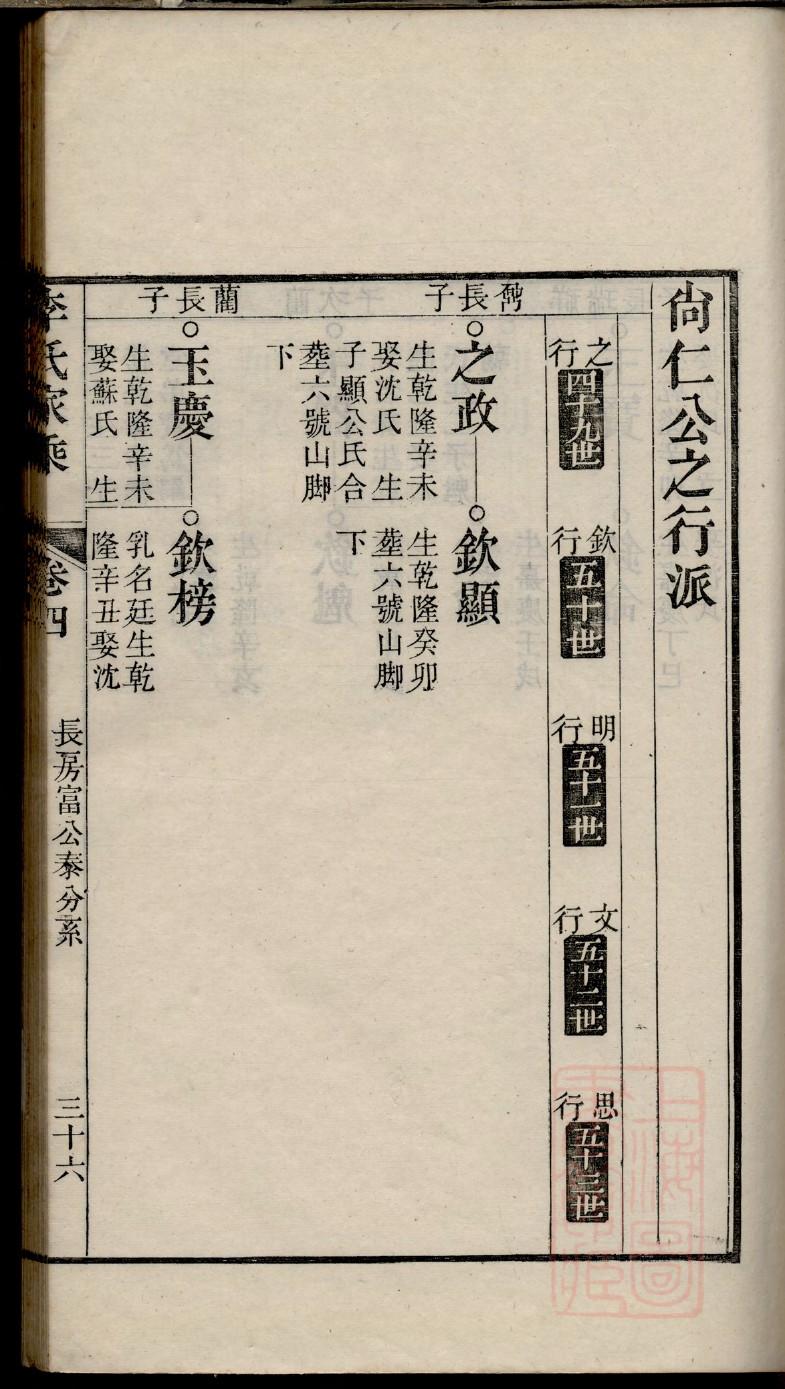 尙仁公之行派
之行 四十九世
欽行 五十世
明行 五十一世
文行 五十二世
思行 五十三世
長子
之政
生乾隆辛未
娶沈氏 生
子顯公氏合
塟六號山脚
下
欽顯
生乾隆癸卯
塟六號山脚
下
藺長子
玉慶
生乾隆辛未
娶蘇氏 生
欽榜
乳名廷生乾
隆辛丑娶沈
李氏家乘
卷四
長房富公泰分系
三十六
上海圖